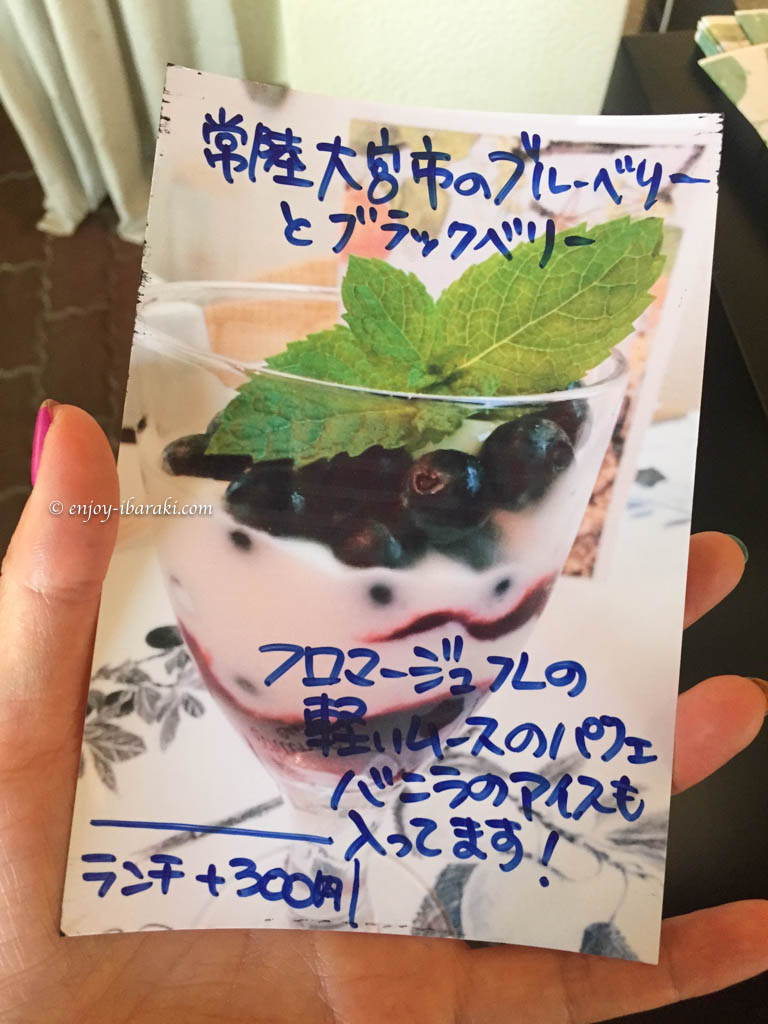 常陸大宮市のブルーベリー
とブラックベリー
© enjoy-ibaraki.com
フロマージュフレの
軽いムースのパフェ
バニラのアイスも
入ってます！
ランチ+300円